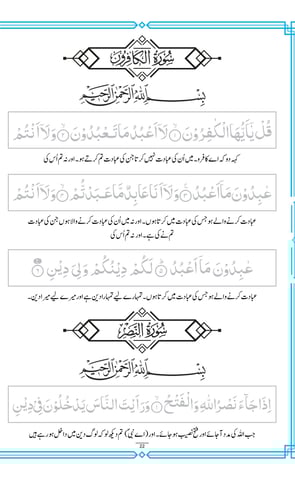 سُورَةُ الْكَافِرُونَ
بِسْمِ اللهِ الرَّحْمٰنِ الرَّحِيْمِ
قُلْ يٰٓاَيُّهَا الْكٰفِرُوْنَ ۝۱ لَآ اَعْبُدُ مَا تَعْبُدُوْنَ ۝۲ وَلَآ اَنْتُمْ
کہہ دو کہ اے کافرو۔ میں اُن کی عبادت نہیں کرتا جن کی عبادت تم کرتے ہو۔ اور نہ تم اُس کی
عٰبِدُوْنَ مَآ اَعْبُدُ ۝۳ وَلَآ اَنَا عَابِدٌ مَّا عَبَدْتُّمْ ۝۴ وَلَآ اَنْتُمْ
عبادت کرنے والے ہو جس کی عبادت میں کرتا ہوں۔ اور نہ میں اُن کی عبادت کرنے والا ہوں جن کی عبادت
تم نے کی ہے۔ اور نہ تم اُس کی
عٰبِدُوْنَ مَآ اَعْبُدُ ۝۵ لَكُمْ دِيْنُكُمْ وَلِيَ دِيْنِ ۝۶
عبادت کرنے والے ہو جس کی عبادت میں کرتا ہوں۔ تمہارے لیے تمہارا دین ہے اور میرے لیے میرا دین۔
سُورَةُ النَّصْرِ
بِسْمِ اللهِ الرَّحْمٰنِ الرَّحِيْمِ
اِذَا جَآءَ نَصْرُ اللهِ وَالْفَتْحُ ۝۱ وَرَاَيْتَ النَّاسَ يَدْخُلُوْنَ فِيْ دِيْنِ
جب اللہ کی مدد آ جائے اور فتح نصیب ہو جائے۔ اور (اے نبی) تم دیکھ لو کہ لوگ دین میں داخل ہو رہے ہیں
22